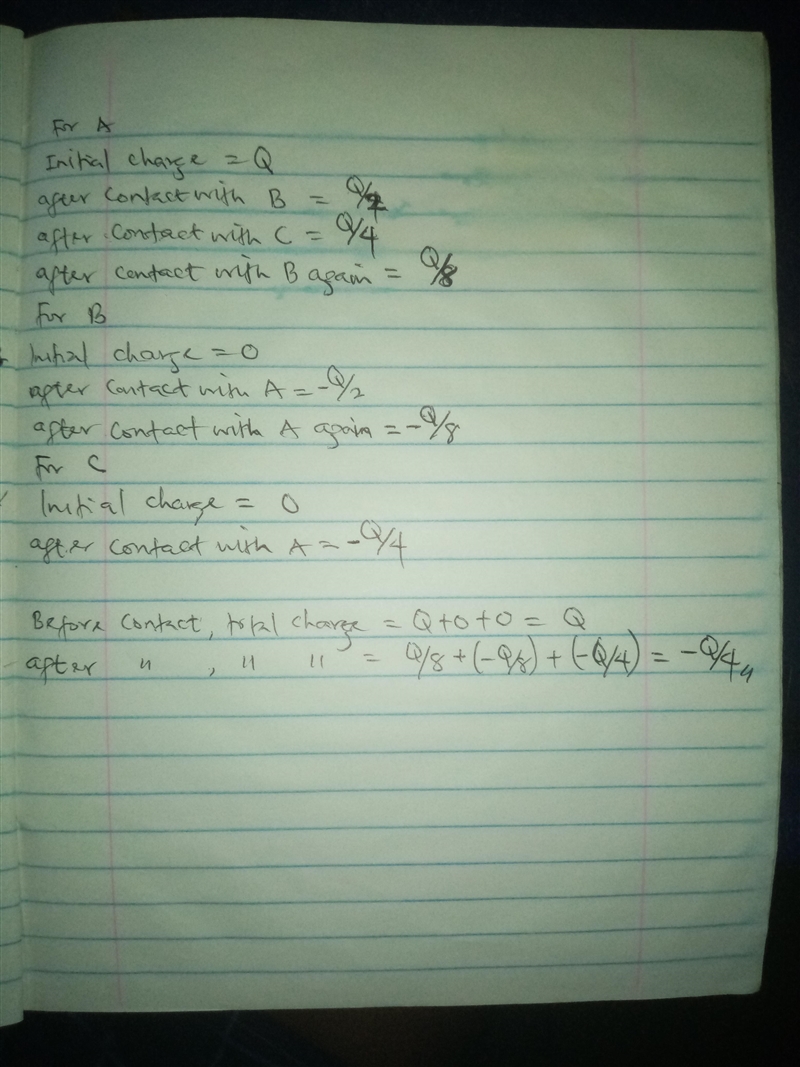 For A
Initial charge = Q
after contact with B = Q/2
after contact with C = Q/4
after contact with B again = Q/8
For B
Initial charge = 0
after contact with A = -Q/2
after contact with A again = -Q/8
For C
Initial charge = 0
after contact with A = -Q/4
Before contact, total charge = Q+0+0 = Q
after " , " " = Q/8 + (-Q/8) + (-Q/4) = -Q/4"